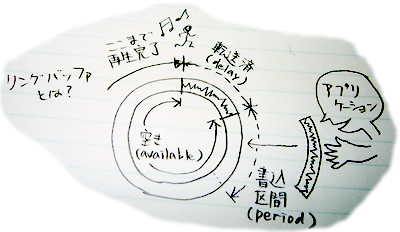 リングバッファ
とは?
ここまで
再生完了
転送済
(delay)
空き
(available)
書込
区間
(period)
アプリ
ケーション